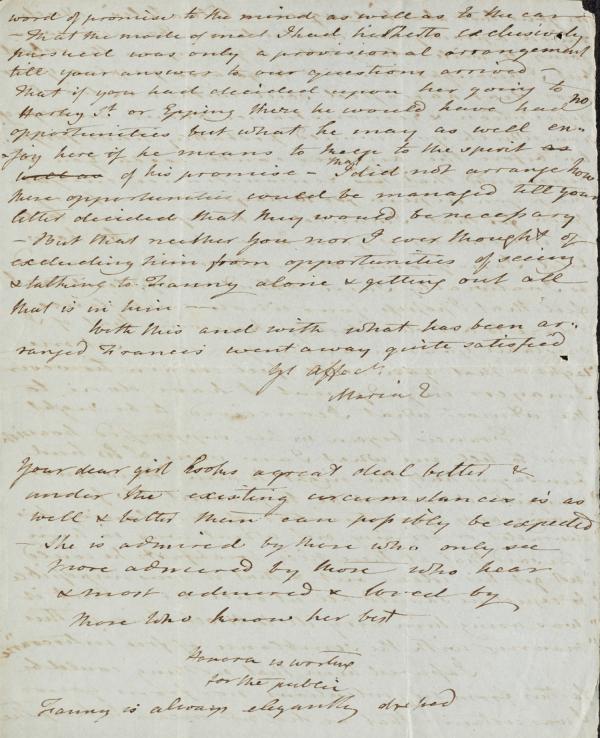 word of promise to the mind as well as to the ear —
— That the mode of meet I had hitherto exclusively
pursued was only a provisional arrangement
till your answer to our questions arrived —
That if you had decided upon her going to
Harley St. or Epping there he would have had no
opportunities but what he may as well en-
-joy here if he means to keep to the spirit as
well as of his promise — that I did not arrange how
these opportunities could be managed till your
letter decided that they would be necessary
— But that neither you nor I ever thought of
excluding him from opportunities of seeing
& talking to Fanny alone & getting out all
that is in him —
With this and with what has been ar-
ranged Francis went away quite satisfied
Yr affect.
Maria E
Your dear girl looks a great deal better &
under the existing circumstances is as
well & better than can possibly be expected
— She is admired by those who only see
more admired by those who hear
& most admired & loved by
those who know her best
Honora is writing
for the public
Fanny is always elegantly dressed